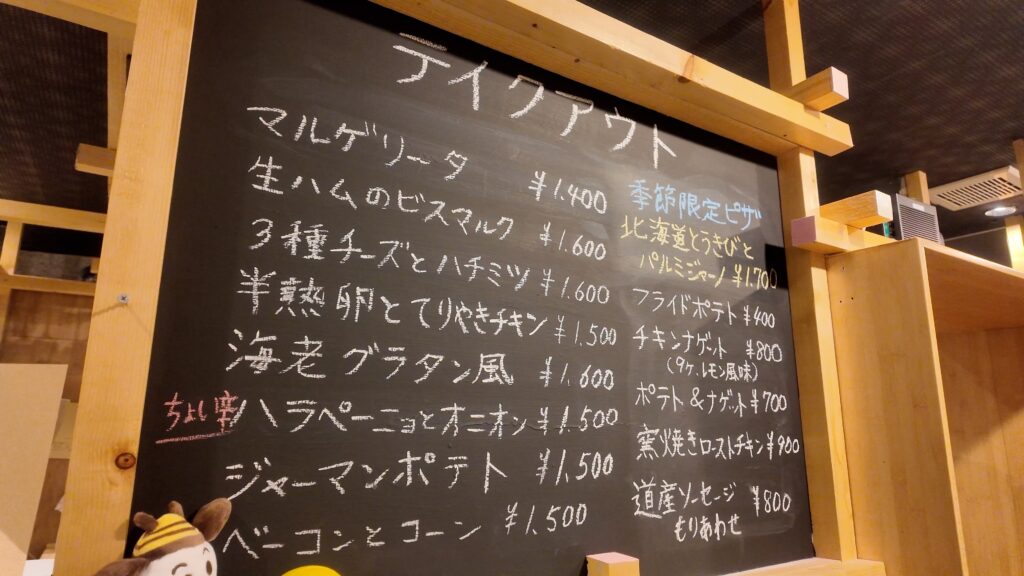 テイクアウト
マルゲリータ ¥1.400
生ハムのビスマルク ¥1.600
3種チーズとハチミツ ¥1.600
半熟卵とてりやきチキン ¥1.500
海老グラタン風 ¥1.600
ちょい辛 ハラペーニョとオニオン ¥1.500
ジャーマンポテト ¥1,500
ベーコンとコーン ¥1,500
季節限定ピザ
北海道とうきびと
パルミジャーノ ¥1.700
フライドポテト ¥400
チキンナゲット ¥800
(9ヶ.レモン風味)
ポテト&ナゲット ¥700
窯焼きローストチキン ¥900
道産ソーセージ ¥800
もりあわせ